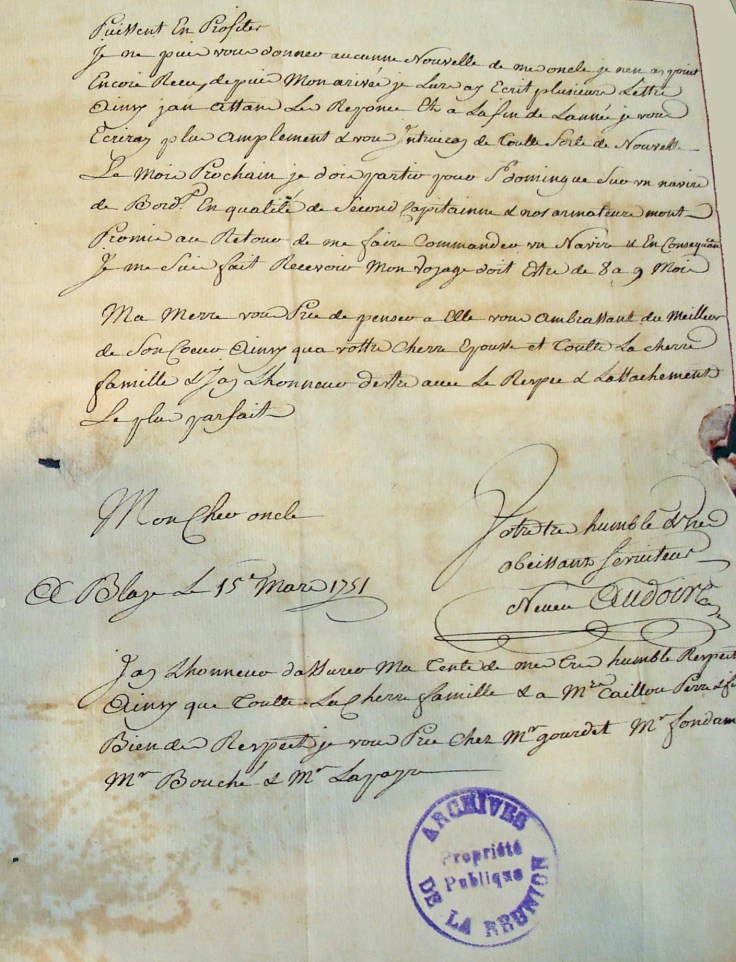 Puissent En Profiter
Je ne puie vous donner aucunne Nouvelle de me oncle je nen ay point
Encore Recu, depuie Mon arivée je Lure ay Ecrit plusieure Lettre
Ainsy jan attane Le Reponce Et a La fin de Lannée je vous
Ecriray plue amplement & vous Intruiray de Toutte Sorte de Nouvelle
Le Moie Prochain je doie partir pour St Domingue Sur vn navire
de Bord.x En qualité de Second Capitainne & nos armateure mont
Promie au Retour de me faire Commander vn Navire & En Consequan
Je me Suie fait Recevoir Mon voyage doit Estre de 8 a 9 Moie
Ma Merre vous Prie de penser a Elle vous ambrassant du Meilleur
de Son Coeur Ainsy qua vottre Cherre Epousse et Toutte La cherre
famille & Jay Lhonneur destre avec Le Respec & Lattachement
Le plue parfait
Mon Cher oncle
Votre tre humble & tre
obeissant Serviteur
Neveu Audoire
A Blaye Le 15e Mare 1751
Jay Lhonneur dassurer Ma Tente de me Tre humble Respect
Ainsy que Toutte La Cherre famille & a Mrs Caillou Perre & fi
Bien de Respect je vous Prie Chez Mr gourdet Mr fondam
Mr Bouché & Mr Lapaye
ARCHIVES
Propriété
Publique
DE LA RÉUNION